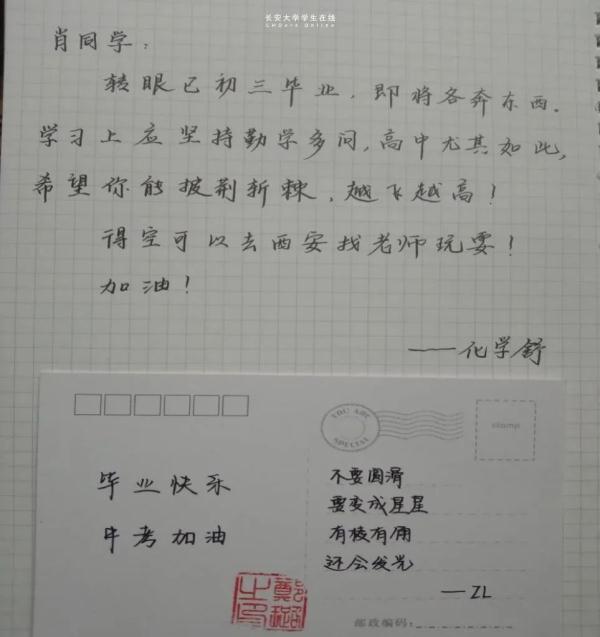 长安大学学生在线
CHDers Online
肖同学：
转眼已初三毕业，即将各奔东西.
学习上应坚持勤学多问,高中尤其如此,
希望你能披荆斩棘，越飞越高！
得空可以去西安找老师玩耍！
加油！
——化学舒
YOU ARE
SPECIAL
stamp
毕业快乐
中考加油
不要圆滑
要变成星星
有棱有角
还会发光
—ZL
郑
之印
邮政编码：